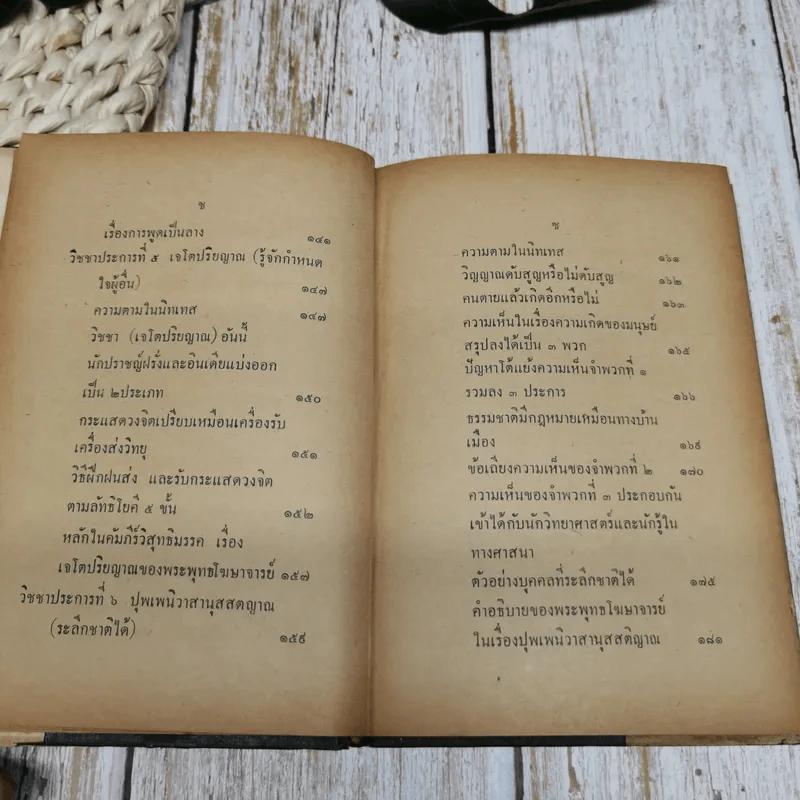 ช
เรื่องการพูดเป็นลาง ๑๔๑
วิชชาประการที่ ๕ เจโตปริยญาณ (รู้จักกำหนด
ใจผู้อื่น) ๑๔๗
ความตามในนิทเทส ๑๔๗
วิชชา (เจโตปริยญาณ) อันนี้
นักปราชญ์ฝรั่งและอินเดียแบ่งออก
เป็น ๒ประเภท ๑๕๐
กระแสดวงจิตเปรียบเหมือนเครื่องรับ
เครื่องส่งวิทยุ ๑๕๑
วิธีฝึกฝนส่ง และรับกระแสดวงจิต
ตามลัทธิโยคี ๕ ขั้น ๑๕๒
หลักในคัมภีร์วิสุทธิมรรค เรื่อง
เจโตปริยญาณของพระพุทธโฆษาจารย์ ๑๕๗
วิชชาประการที่ ๖ ปุพเพนิวาสานุสสตญาณ
(ระลึกชาติได้) ๑๕๙
ซ
ความตามในนิทเทส ๑๖๑
วิญญาณดับสูญหรือไม่ดับสูญ ๑๖๒
คนตายแล้วเกิดอีกหรือไม่ ๑๖๓
ความเห็นในเรื่องความเกิดของมนุษย์
สรุปลงได้เป็น ๓ พวก ๑๖๕
ปัญหาโต้แย้งความเห็นจำพวกที่ ๑
รวมลง ๓ ประการ ๑๖๖
ธรรมชาติมีกฎหมายเหมือนทางบ้าน
เมือง ๑๖๙
ข้อเถียงความเห็นของจำพวกที่ ๒ ๑๗๐
ความเห็นของจำพวกที่ ๓ ประกอบกัน
เข้าได้กับนักวิทยาศาสตร์และนักรู้ใน
ทางศาสนา
ตัวอย่างบุคคลที่ระลึกชาติได้ ๑๗๕
คำอธิบายของพระพุทธโฆษาจารย์
ในเรื่องปุพเพนิวาสานุสสติญาณ ๑๘๑